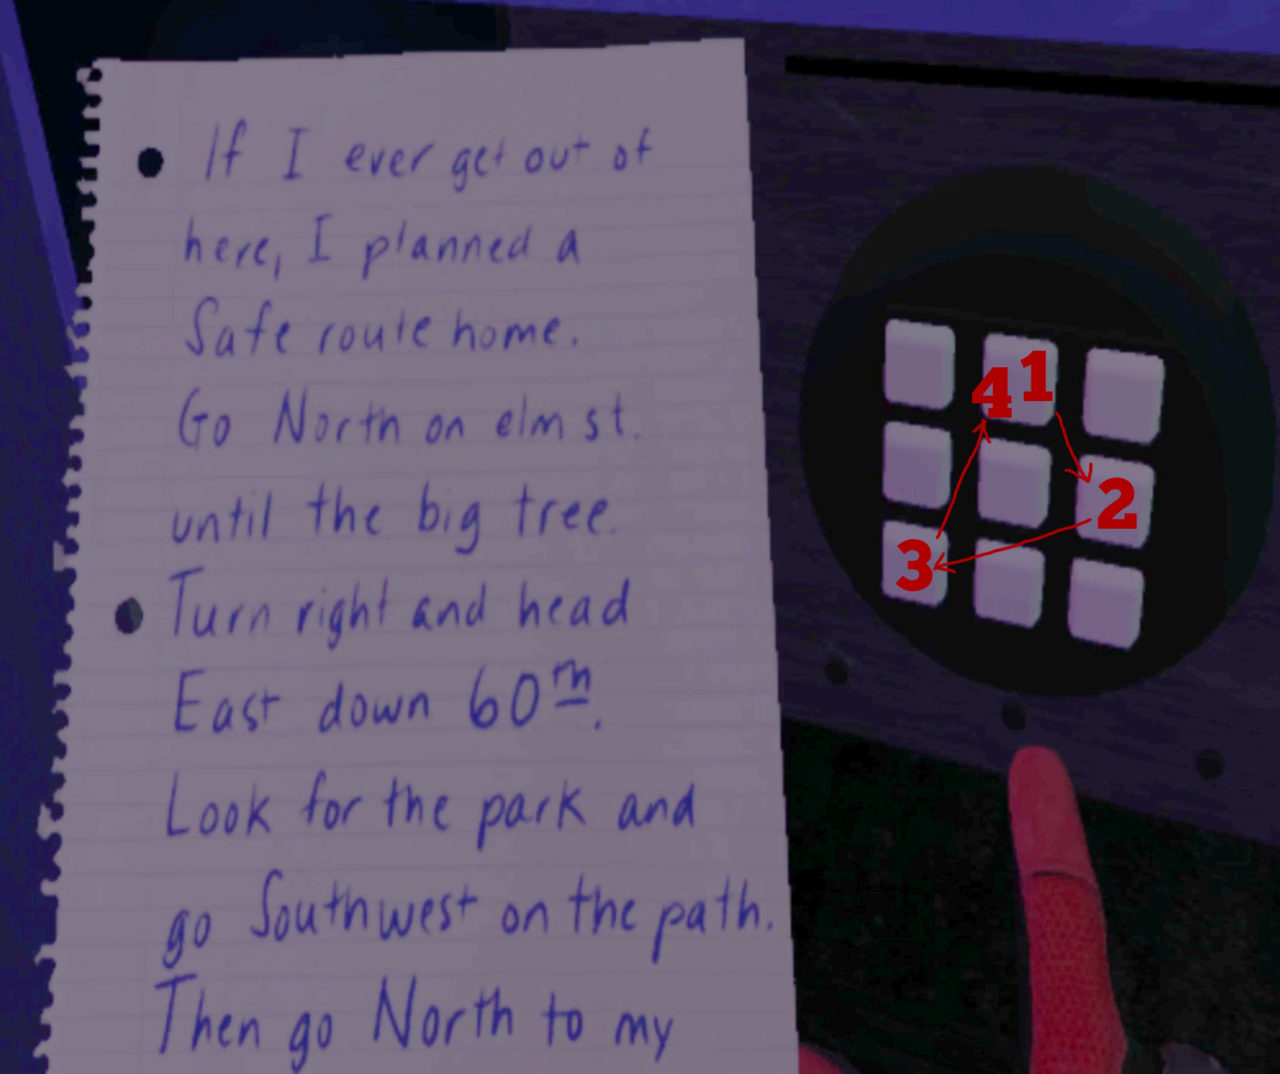 If I ever get out of
here, I planned a
Safe route home.
Go North on elm st.
until the big tree.
Turn right and head
East down 60th.
Look for the park and
go Southwest on the path.
Then go North to my
4 1
2
3